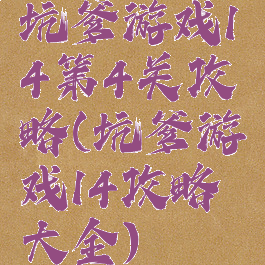 坑爹游戏1
4第4关攻
略(坑爹游
戏14攻略
大全)